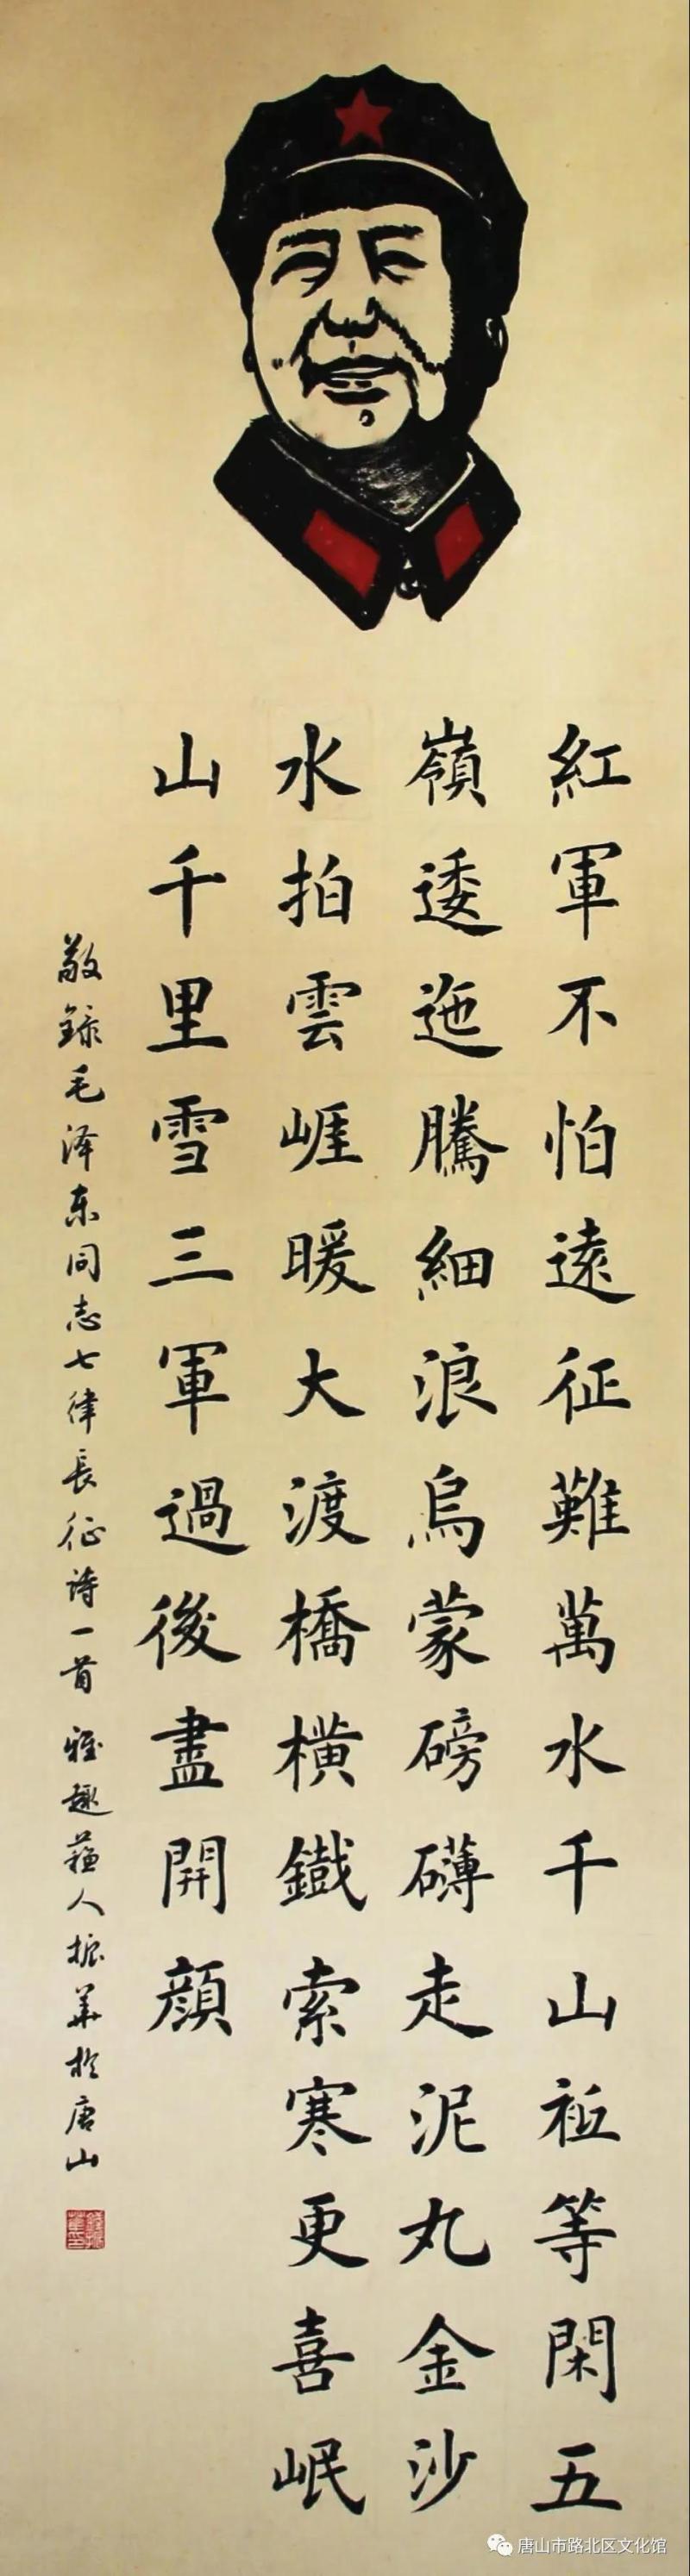 紅軍不怕遠征難萬水千山祗等閑五
嶺逶迤騰細浪烏蒙磅礴走泥丸金沙
水拍雲崕暖大渡橋橫鐵索寒更喜岷
山千里雪三軍過後盡開顔
敬録毛泽东同志七律長征诗一首 雅趣蘓人振华於唐山
唐山市路北区文化馆